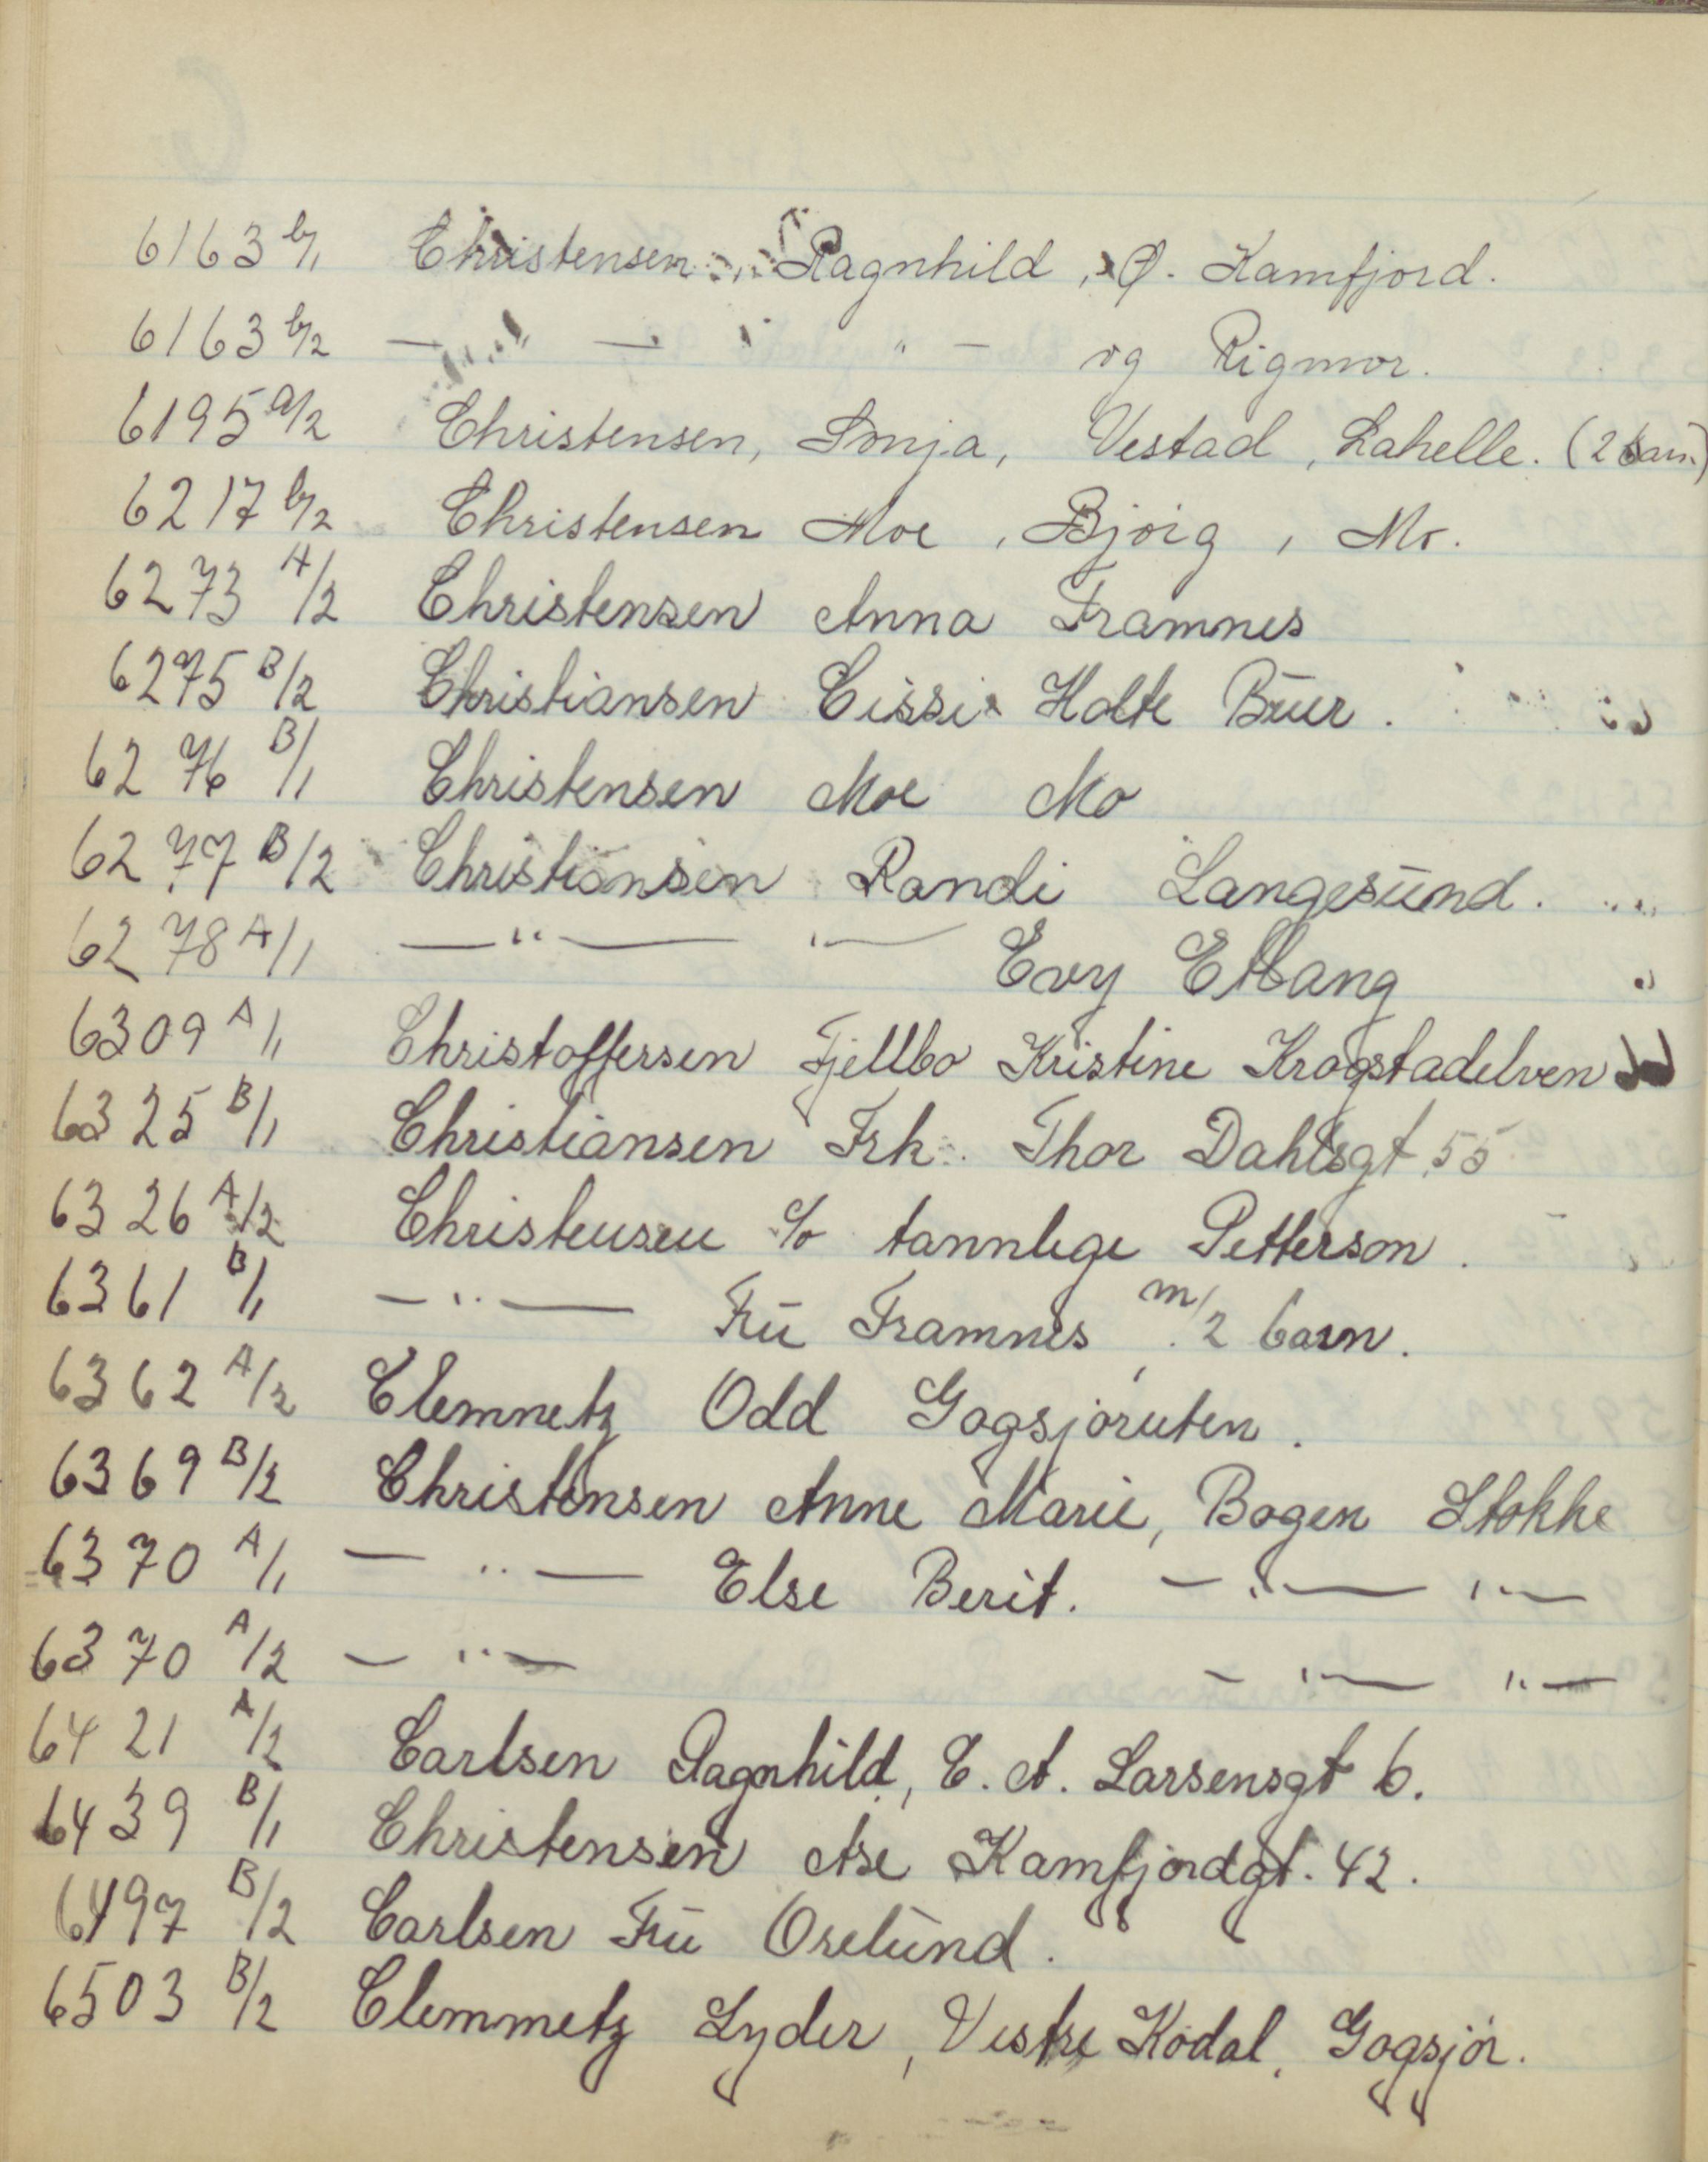 6163 b/1 Christensen, Ragnhild, Ø. Kamfjord.
6163 b/2 — " — " — og Rigmor.
6195 a/2 Christensen, Sonja, Vestad, Lahelle. (2 barn)
6217 b/2 Christensen Moe, Bjørg, Mo.
6273 A/2 Christensen Anna Framnes
6275 B/2 Christiansen Cissi Holte Buer.
6276 B/1 Christensen Moe Mo
6277 B/2 Christiansen Randi Langesund.
6278 A/1 — " — " — Evy Elbang
6309 A/1 Christoffersen Fjellbo Kristine Krogstadelven
6325 B/1 Christiansen Frk. Thor Dahlsgt 55
6326 A/2 Christensen c/o tannlege Petterson.
6361 B/1 — " — Fru Framnes m/2 barn.
6362 A/2 Clemmetz Odd Gogsjøruten.
6369 B/2 Christensen Anne Marie, Bogen Stokke
6370 A/1 — " — Else Berit. — " — " —
6370 A/2 — " — — " — " —
6421 A/2 Carlsen Ragnhild, C. A. Larsensgt 6.
6439 B/1 Christensen Åse Kamfjordgt. 42.
6497 B/2 Carlsen Fru Orelund.
6503 B/2 Clemmetz Lyder, Vestre Kodal, Gogsjør.